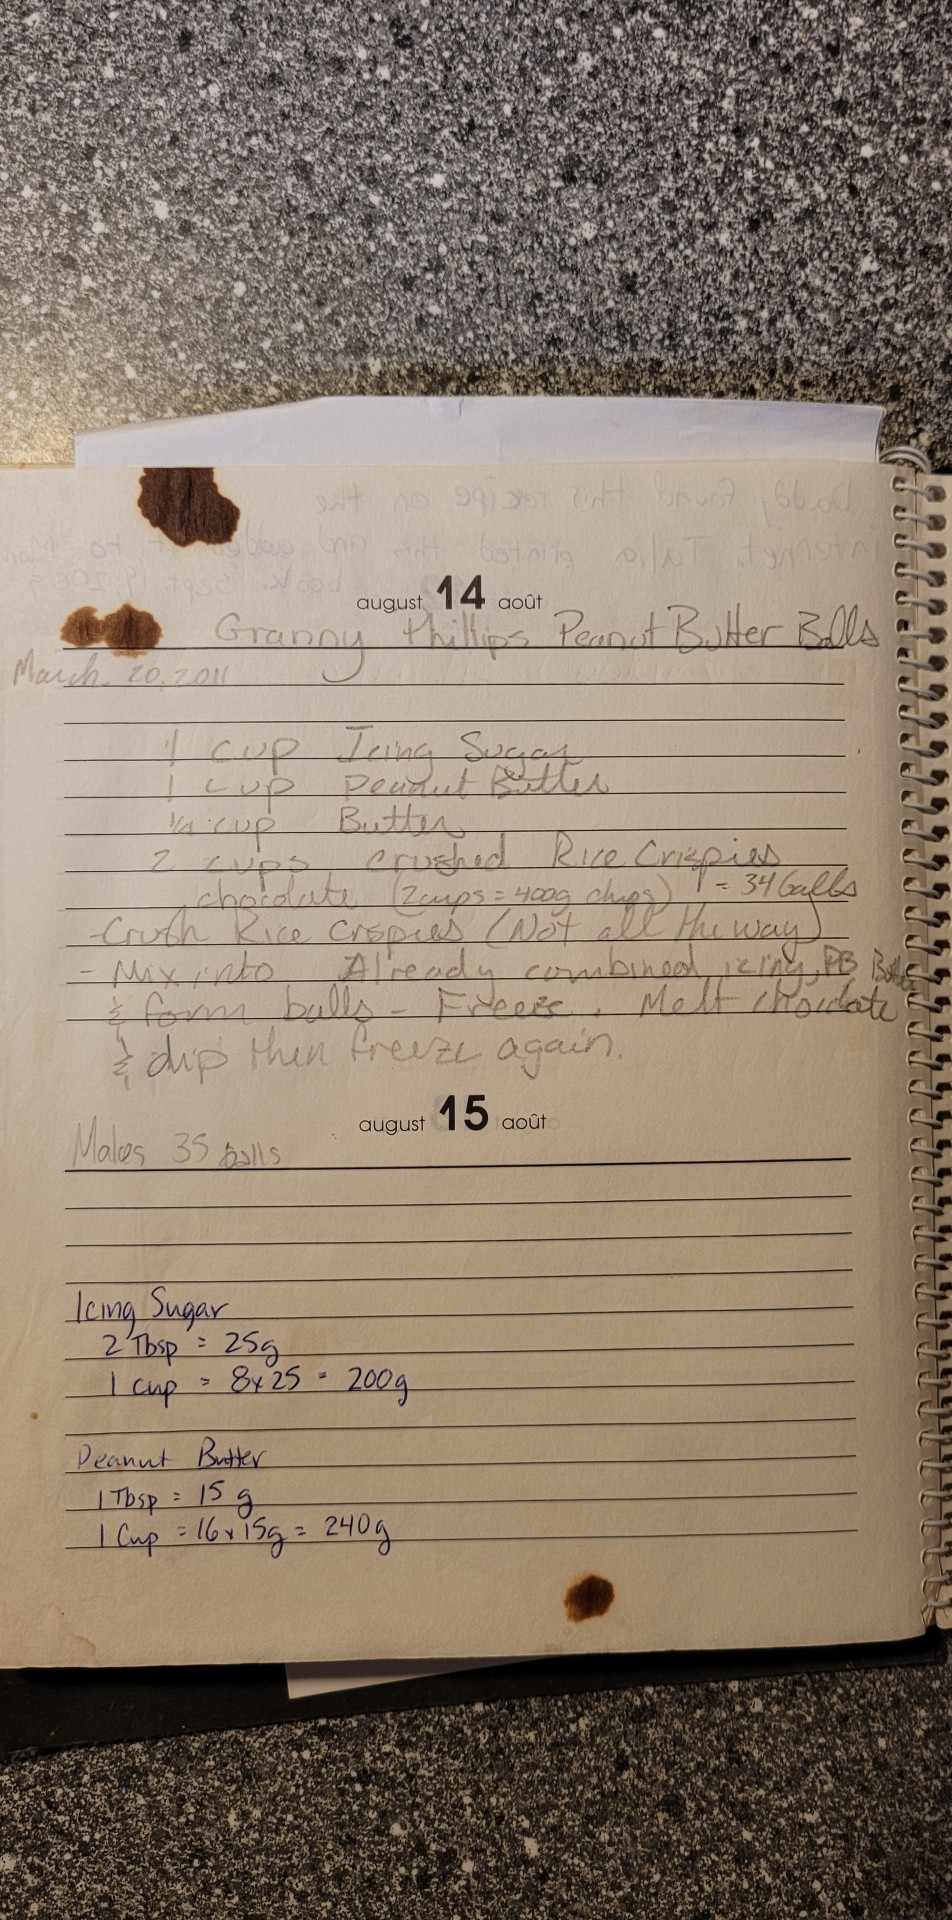 august 14 août
Granny Phillips Peanut Butter Balls
March 20, 2011
1 cup Icing Sugar
1 cup Peanut Butter
1/4 cup Butter
2 cups crushed Rice Crispies
chocolate (2 cups = 400g chips) = 34 balls
- Crush Rice Crispies (Not all the way)
- Mix into Already combined icing, PB Butter
& form balls - Freeze. Melt chocolate
& dip then freeze again.
august 15 août
Makes 35 balls
Icing Sugar
2 Tbsp = 25g
1 cup = 8x25 = 200g
Peanut Butter
1 Tbsp = 15 g
1 Cup = 16 x 15g = 240g